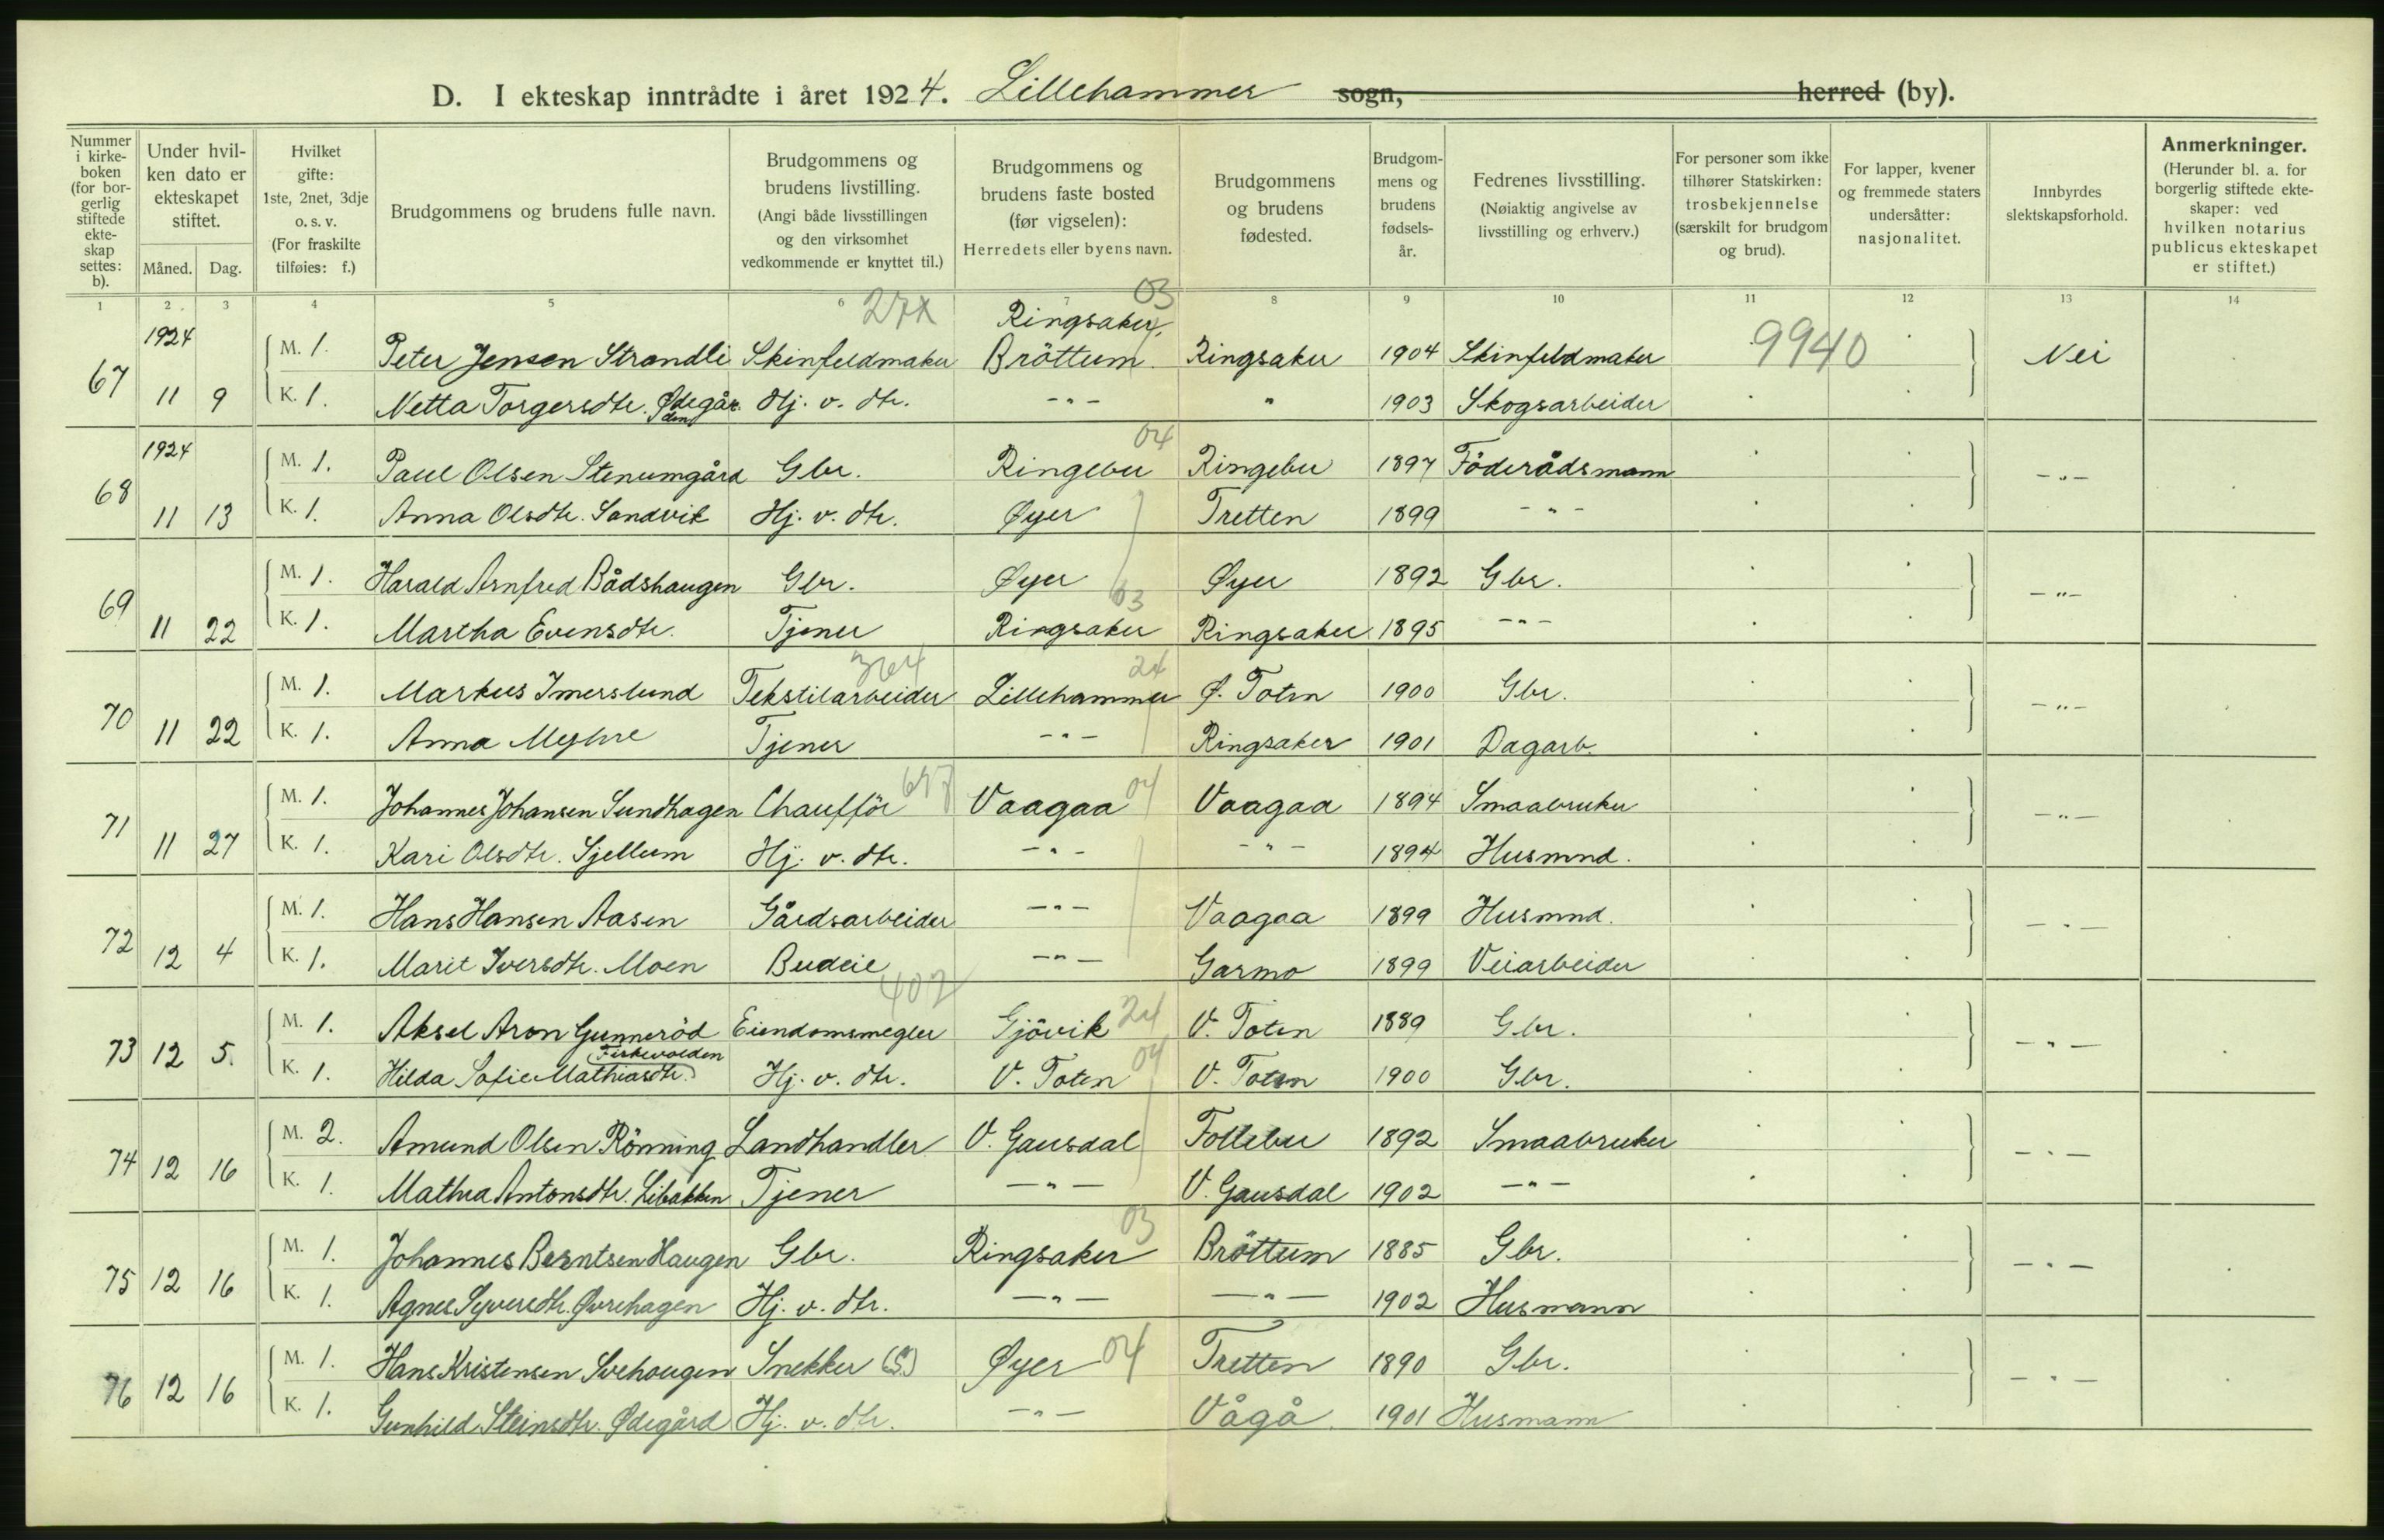 D. I ekteskap inntrådte i året 1924. Lillehammer sogn, herred (by).
Nummer i kirkeboken (for borgerlig stiftede ekteskap settes: b).
Under hvilken dato er ekteskapet stiftet.
Måned. Dag.
Hvilket gifte: 1ste, 2net, 3dje o. s. v. (For fraskilte tilføies: f.)
Brudgommens og brudens fulle navn.
Brudgommens og brudens livstilling. (Angi både livsstillingen og den virksomhet vedkommende er knyttet til.)
Brudgommens og brudens faste bosted (før vigselen): Herredets eller byens navn.
Brudgommens og brudens fødested.
Brudgommens og brudens fødselsår.
Fedrenes livsstilling. (Nøiaktig angivelse av livsstilling og erhverv.)
For personer som ikke tilhører Statskirken: trosbekjennelse (særskilt for brudgom og brud).
For lapper, kvener og fremmede staters undersåtter: nasjonalitet.
Innbyrdes slektskapsforhold.
Anmerkninger. (Herunder bl. a. for borgerlig stiftede ekteskaper: ved hvilken notarius publicus ekteskapet er stiftet.)
1 2 3 4 5 6 7 8 9 10 11 12 13 14
27x Ringsaker, 03
67 1924 M. 1. Peter Jensen Strandli Skinfeldmaker Bröttum Ringsaker 1904 Skinfeldmaker 9940 Nei
11 9 K. 1. Netta Torgersdtr. Ødegården Hj. v. dtr. -"- " 1903 Skogsarbeider
04
68 1924 M. 1. Paul Olsen Stenumgård Gbr. Ringebu Ringebu 1897 Föderådsmann -"-
11 13 K. 1. Anna Olsdtr. Sandvik Hj. v. dtr. Øyer Tretten 1899 -"-
69 M. 1. Harald Arnfred Bådshaugen Gbr. Øyer Øyer 1892 Gbr. -"-
03
11 22 K. 1. Martha Evensdtr. Tjener Ringsaker Ringsaker 1895 -"-
364 24
70 M. 1. Markus Imerslund Tekstilarbeider Lillehammer Ø. Toten 1900 Gbr. -"-
11 22 K. 1. Anna Myhre Tjener -"- Ringsaker 1901 Dagarb.
71 M. 1. Johannes Johansen Sundhagen Chaufför Vaagaa 04 Vaagaa 1894 Smaabruker -"-
11 27 K. 1. Kari Olsdtr. Sjellum Hj. v. dtr. -"- -"- 1894 Husmnd.
72 M. 1. Hans Hansen Aasen Gårdsarbeider -"- Vaagaa 1899 Husmnd. -"-
12 4 K. 1. Marit Iversdtr. Moen Budeie -"- Garmo 1899 Veiarbeider
402
73 12 5. M. 1. Aksel Aron Gunneröd Eiendomsmegler Gjövik 24 V. Toten 1889 Gbr. -"-
Fiskevolden
K. 1. Hilda Sofie Mathiasdtr. Hj. v. dtr. V. Toten 04 V. Toten 1900 Gbr.
74 12 16 M. 2. Amund Olsen Rönning Landhandler V. Gausdal Follebu 1892 Smaabruker -"-
K. 1. Mathea Antonsdtr. Libakken Tjener -"- V. Gausdal 1902 -"-
03
75 12 16 M. 1. Johannes Berntsen Haugen Gbr. Ringsaker Bröttum 1885 Gbr. -"-
K. 1. Agnes Syversdtr. Øvrehagen Hj. v. dtr. -"- -"- 1902 Husmann
76 12 16 M. 1. Hans Kristensen Svehaugen Snekker (S.) Øyer 04 Tretten 1890 Gbr. -"-
K. 1. Gunhild Steinsdtr. Ødegård Hj. v. dtr. -"- Vågå 1901 Husmann